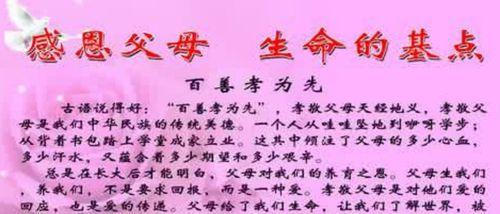 感恩父母 生命的基点
百善孝为先
古语说得好：“百善孝为先”，孝敬父母天经地义，孝敬父
母是我们中华民族的传统美德。一个人从哇哇坠地到咿呀学步；
从背着书包踏上学堂成家立业。这其中倾注了父母的多少心血，
多少汗水，又蕴含着多少期望和多少艰辛。
总是在长大后才能明白，父母对我们的养育之恩。父母生我们
，养我们，不是要求回报，而是一种爱。孝敬父母是对他们爱的
回应，也是爱的传递。父母给了我们生命，让我们了解世界，被